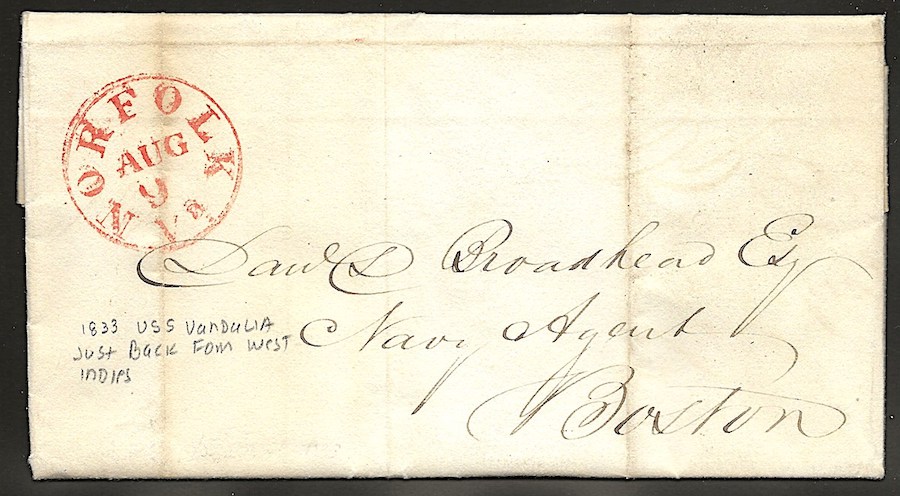 NORFOLK
AUG
9
Va
Danl D Broadhead Esq
Navy Agent
Boston
1833 USS VANDALIA
Just Back Fom West
INDIES